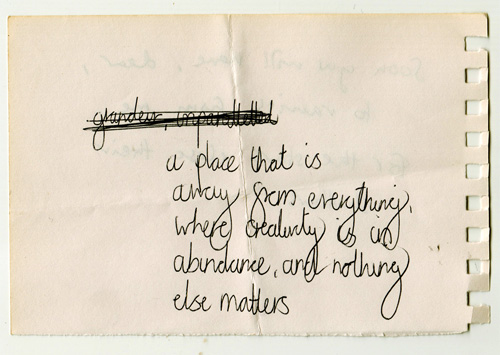 grandeur, unparalleled
a place that is
away from everything,
where creativity is in
abundance, and nothing
else matters